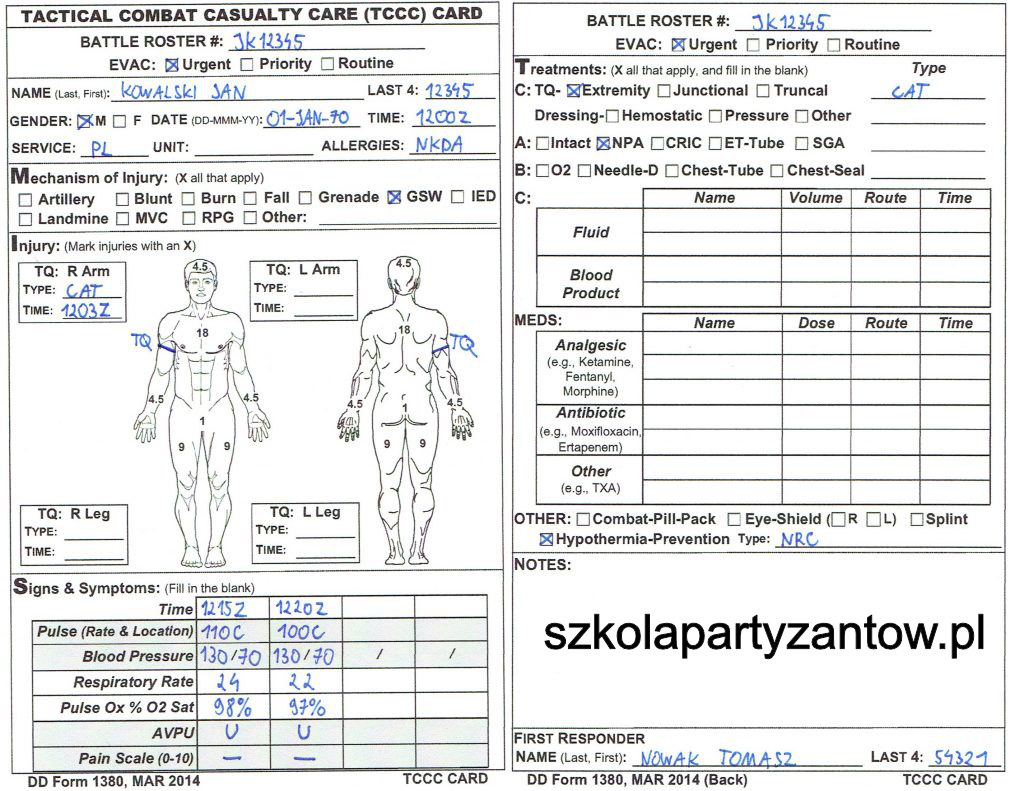 TACTICAL COMBAT CASUALTY CARE (TCCC) CARD
BATTLE ROSTER #: JK12345
EVAC: ☒ Urgent ☐ Priority ☐ Routine
NAME (Last, First): KOWALSKI JAN LAST 4: 12345
GENDER: ☒ M ☐ F DATE (DD-MMM-YY): 01-JAN-70 TIME: 1200Z
SERVICE: PL UNIT: ALLERGIES: NKDA
Mechanism of Injury: (X all that apply)
☐ Artillery ☐ Blunt ☐ Burn ☐ Fall ☐ Grenade ☒ GSW ☐ IED
☐ Landmine ☐ MVC ☐ RPG ☐ Other:
Injury: (Mark injuries with an X)
TQ: R Arm
TYPE: CAT
TIME: 1203Z
TQ: L Arm
TYPE:
TIME:
4.5
18
TQ
4.5
4.5
1
9
9
4.5
18
TQ
4.5
4.5
1
9
9
TQ: R Leg
TYPE:
TIME:
TQ: L Leg
TYPE:
TIME:
Signs & Symptoms: (Fill in the blank)
Time 1215Z 1220Z
Pulse (Rate & Location) 110C 100C
Blood Pressure 130/70 130/70 / /
Respiratory Rate 24 22
Pulse Ox % O2 Sat 98% 97%
AVPU U U
Pain Scale (0-10) — —
DD Form 1380, MAR 2014 TCCC CARD
BATTLE ROSTER #: JK12345
EVAC: ☒ Urgent ☐ Priority ☐ Routine
Treatments: (X all that apply, and fill in the blank) Type
C: TQ- ☒ Extremity ☐ Junctional ☐ Truncal CAT
Dressing- ☐ Hemostatic ☐ Pressure ☐ Other
A: ☐ Intact ☒ NPA ☐ CRIC ☐ ET-Tube ☐ SGA
B: ☐ O2 ☐ Needle-D ☐ Chest-Tube ☐ Chest-Seal
C:
Name Volume Route Time
Fluid
Blood
Product
MEDS:
Name Dose Route Time
Analgesic
(e.g., Ketamine,
Fentanyl,
Morphine)
Antibiotic
(e.g., Moxifloxacin,
Ertapenem)
Other
(e.g., TXA)
OTHER: ☐ Combat-Pill-Pack ☐ Eye-Shield (☐ R ☐ L) ☐ Splint
☒ Hypothermia-Prevention Type: NRC
NOTES:
szkolapartyzantow.pl
FIRST RESPONDER
NAME (Last, First): NOWAK TOMASZ LAST 4: 54321
DD Form 1380, MAR 2014 (Back) TCCC CARD